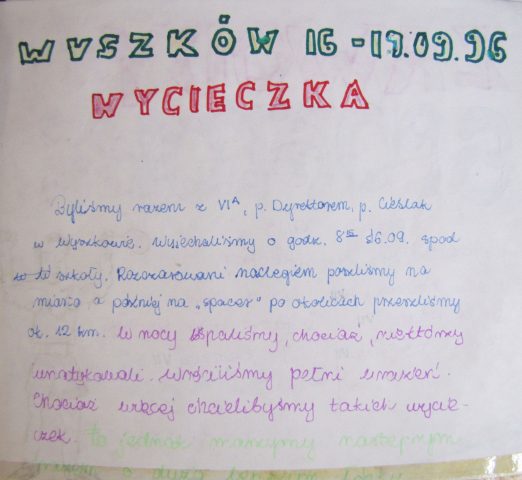 WYSZKÓW 16-17.09.96
WYCIECZKA
Byliśmy razem z VI A, p. Dyrektorem, p. Cieślak
w Wyszkowie. Wyjechaliśmy o godz. 8 16.09. spod
szkoły. Rozczarowani noclegiem poszliśmy na
miasto a później na „spacer" po okolicach przeszliśmy
ok. 12 km. W nocy spaliśmy, chociaż, niektórzy
. Wróciliśmy pełni wrażeń.
Chociaż więcej chcielibyśmy takich wycie-
czek. to jednak marzymy następnym
razem o